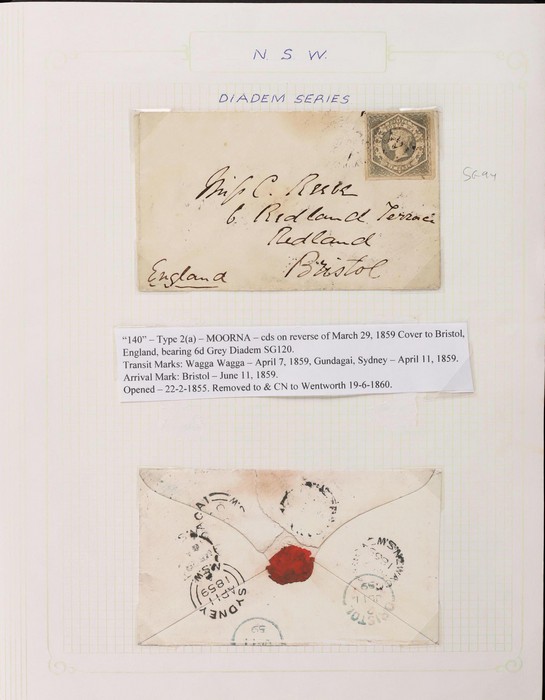 N. S W.
DIADEM SERIES
Miss C. Reeve
6 Redland Terrace
Redland
Bristol
England
"140" – Type 2(a) – MOORNA – cds on reverse of March 29, 1859 Cover to Bristol,
England, bearing 6d Grey Diadem SG120.
Transit Marks: Wagga Wagga – April 7, 1859, Gundagai, Sydney – April 11, 1859.
Arrival Mark: Bristol – June 11, 1859.
Opened – 22-2-1855. Removed to & CN to Wentworth 19-6-1860.
SYDNEY
AP 11
1859
N.S.W
BRISTOL
59